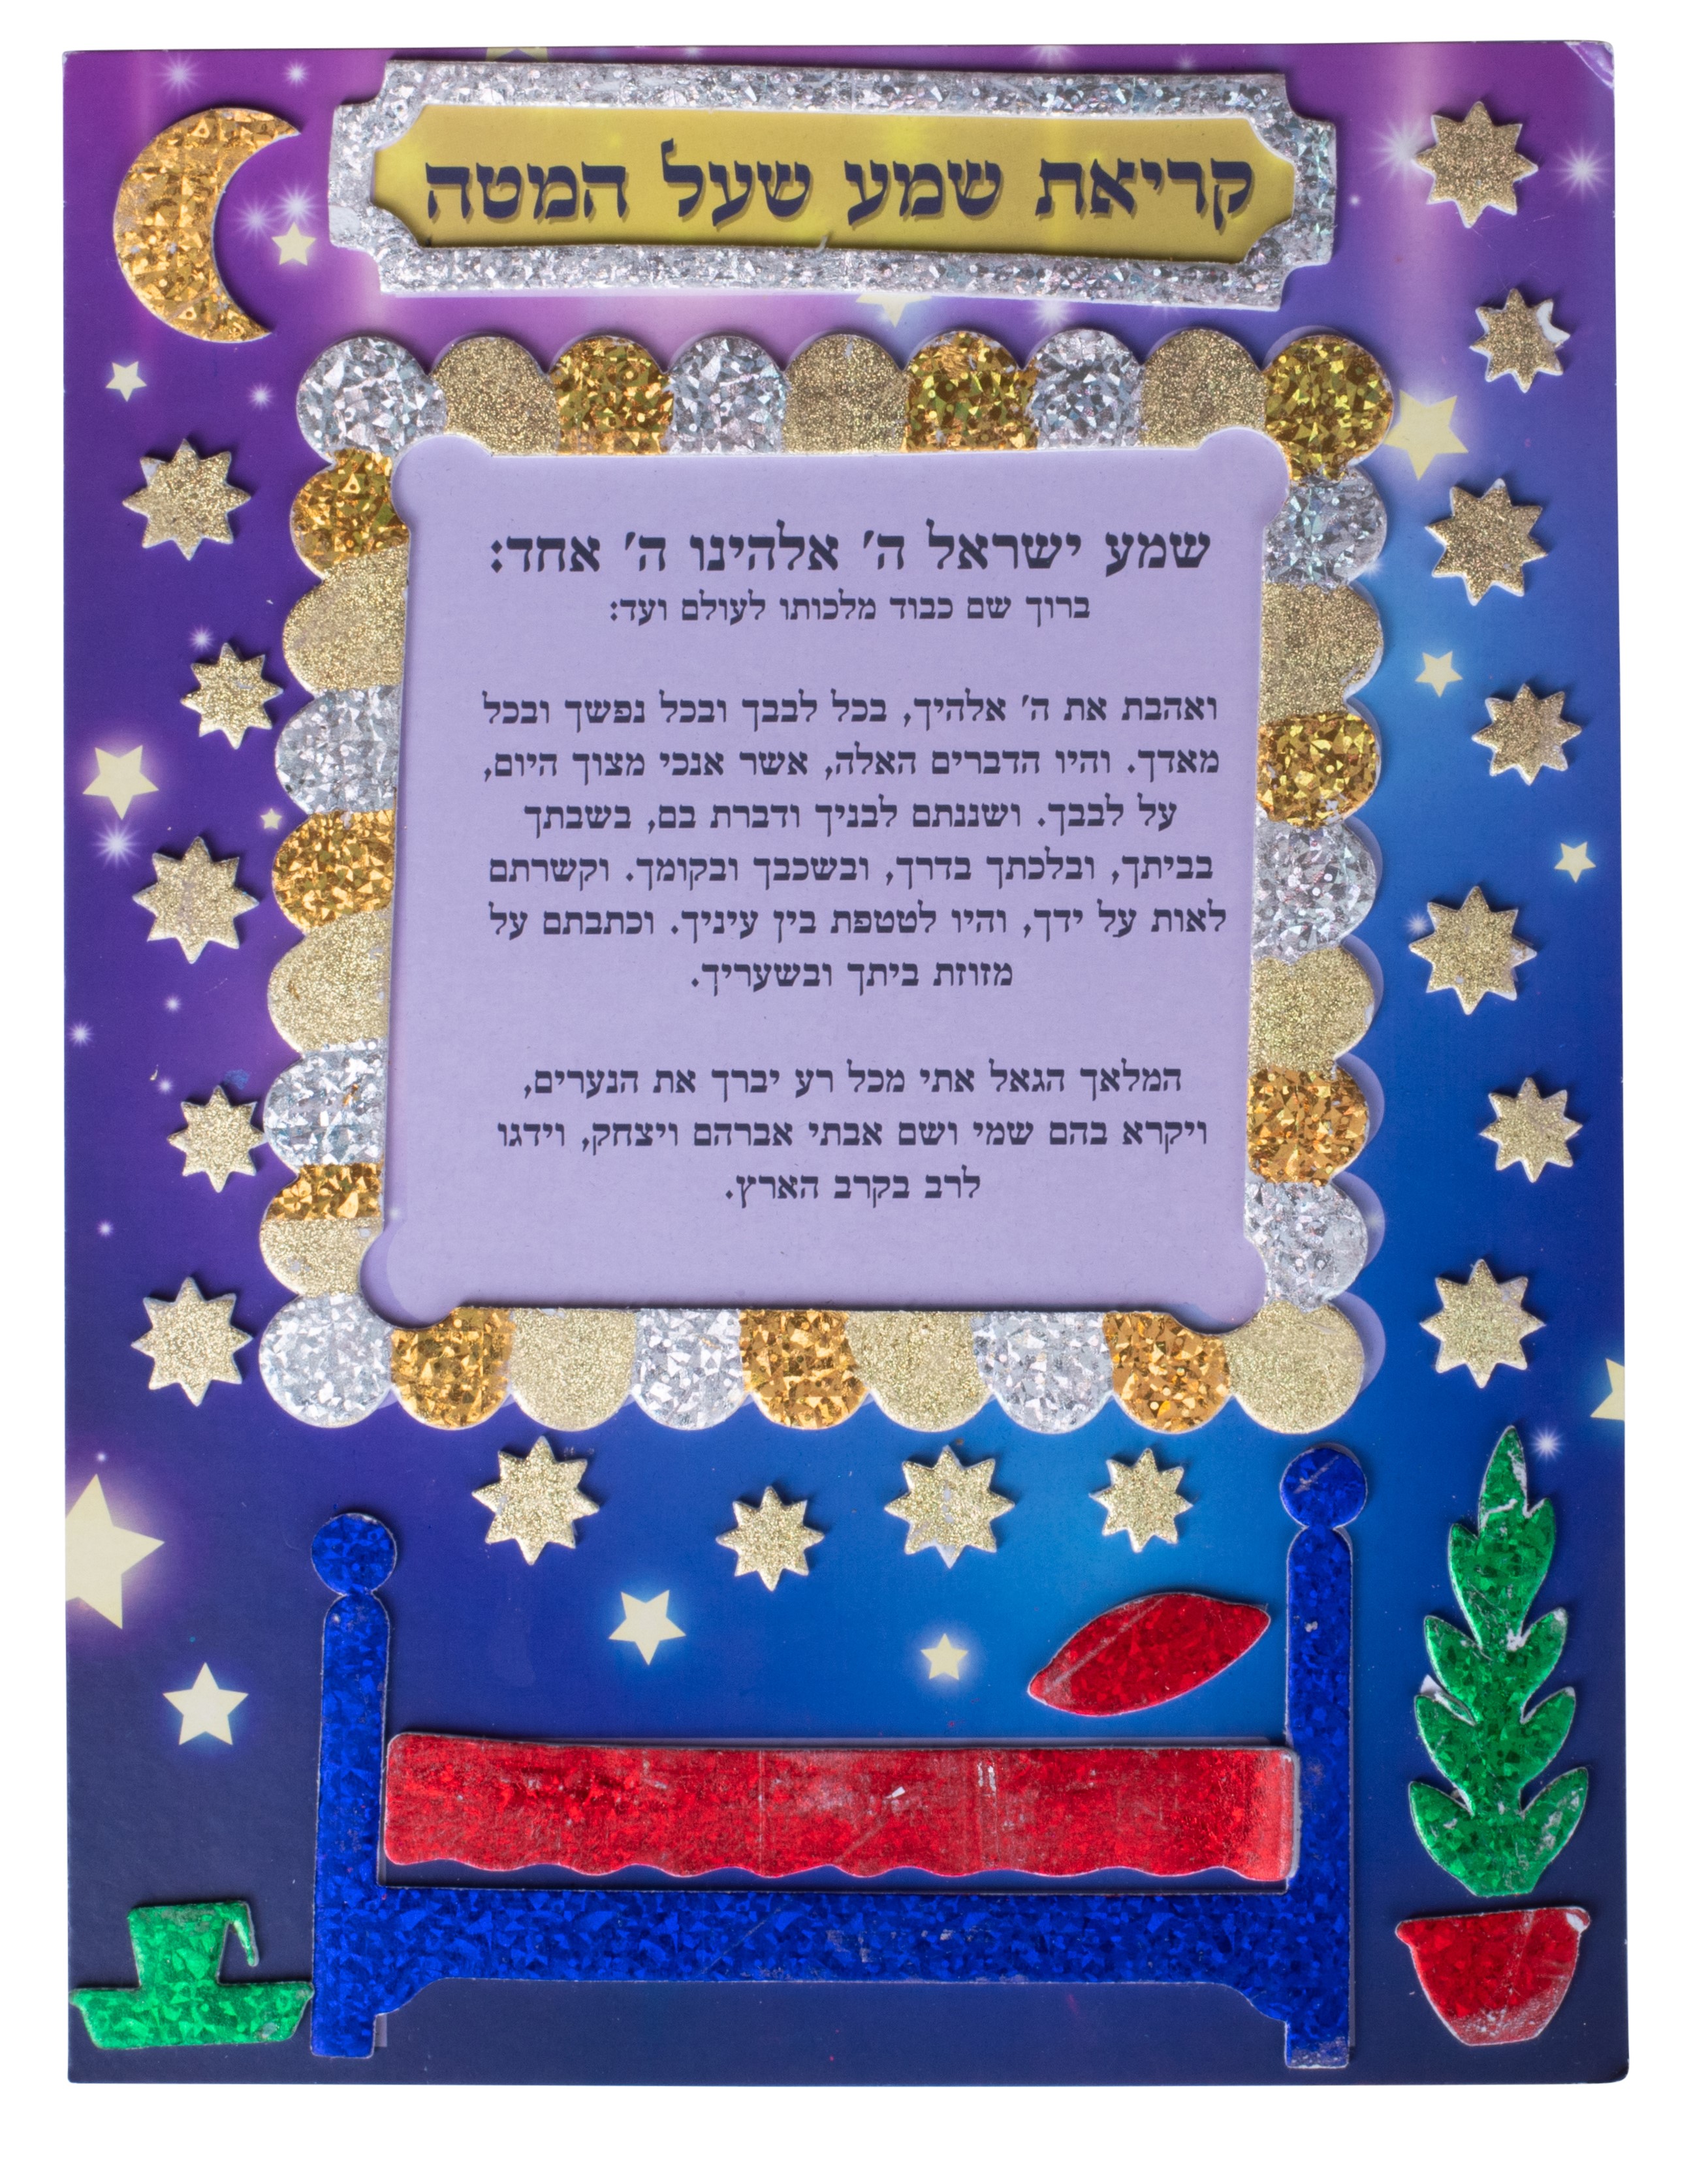 קריאת שמע שעל המטה
שמע ישראל ה' אלהינו ה' אחד:
ברוך שם כבוד מלכותו לעולם ועד:
ואהבת את ה' אלהיך, בכל לבבך ובכל נפשך ובכל
מאדך. והיו הדברים האלה, אשר אנכי מצוך היום,
על לבבך. ושננתם לבניך ודברת בם, בשבתך
בביתך, ובלכתך בדרך, ובשכבך ובקומך. וקשרתם
לאות על ידך, והיו לטטפת בין עיניך. וכתבתם על
מזוזת ביתך ובשעריך.
המלאך הגאל אתי מכל רע יברך את הנערים,
ויקרא בהם שמי ושם אבתי אברהם ויצחק, וידגו
לרב בקרב הארץ.